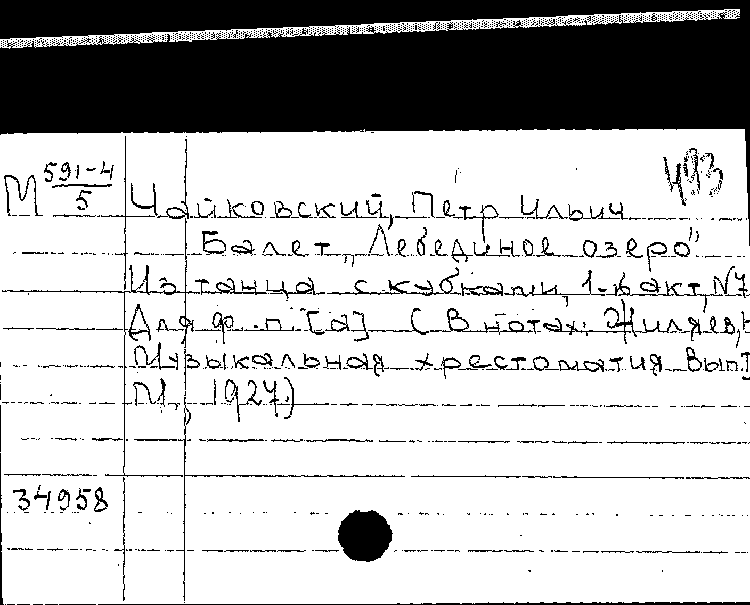 493
М 591-4/5
Чайковский, Петр Ильич
Балет „Лебединое озеро"
Из танца с кубками, 1-й акт, N7
Для ф.-п. [а] (В нотах: Жиляев,
Музыкальная хрестоматия Вып.I
М., 1927.)
34958